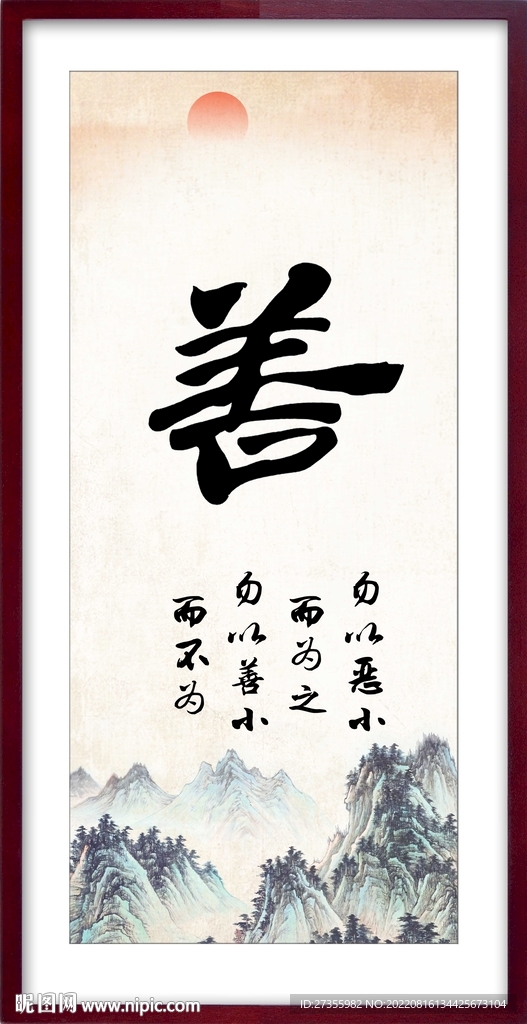 善
勿以恶小
而为之
勿以善小
而不为
昵图网 www.nipic.com
ID:27355982 NO:20220816134425673104